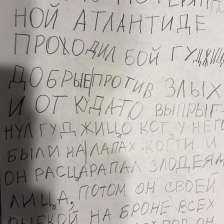 НОЙ АТЛАНТИДЕ
ПРОХОДИЛ БОЙ
ДОБРЫЕ ПРОТИВ ЗЛЫХ
И ОТКЮДАТО ВЫПРЫГ
НУЛ ГУДЖИЩО КОТ У НЕГО
БЫЛИ НА ЛАПАХ КОГТИ И
ОН РАСЦАРАПАЛ ЗЛОДЕЯМ
ЛИЦА, ПОТОМ ОН СВОЕЙ
НА БРОНЕ ВСЕХ